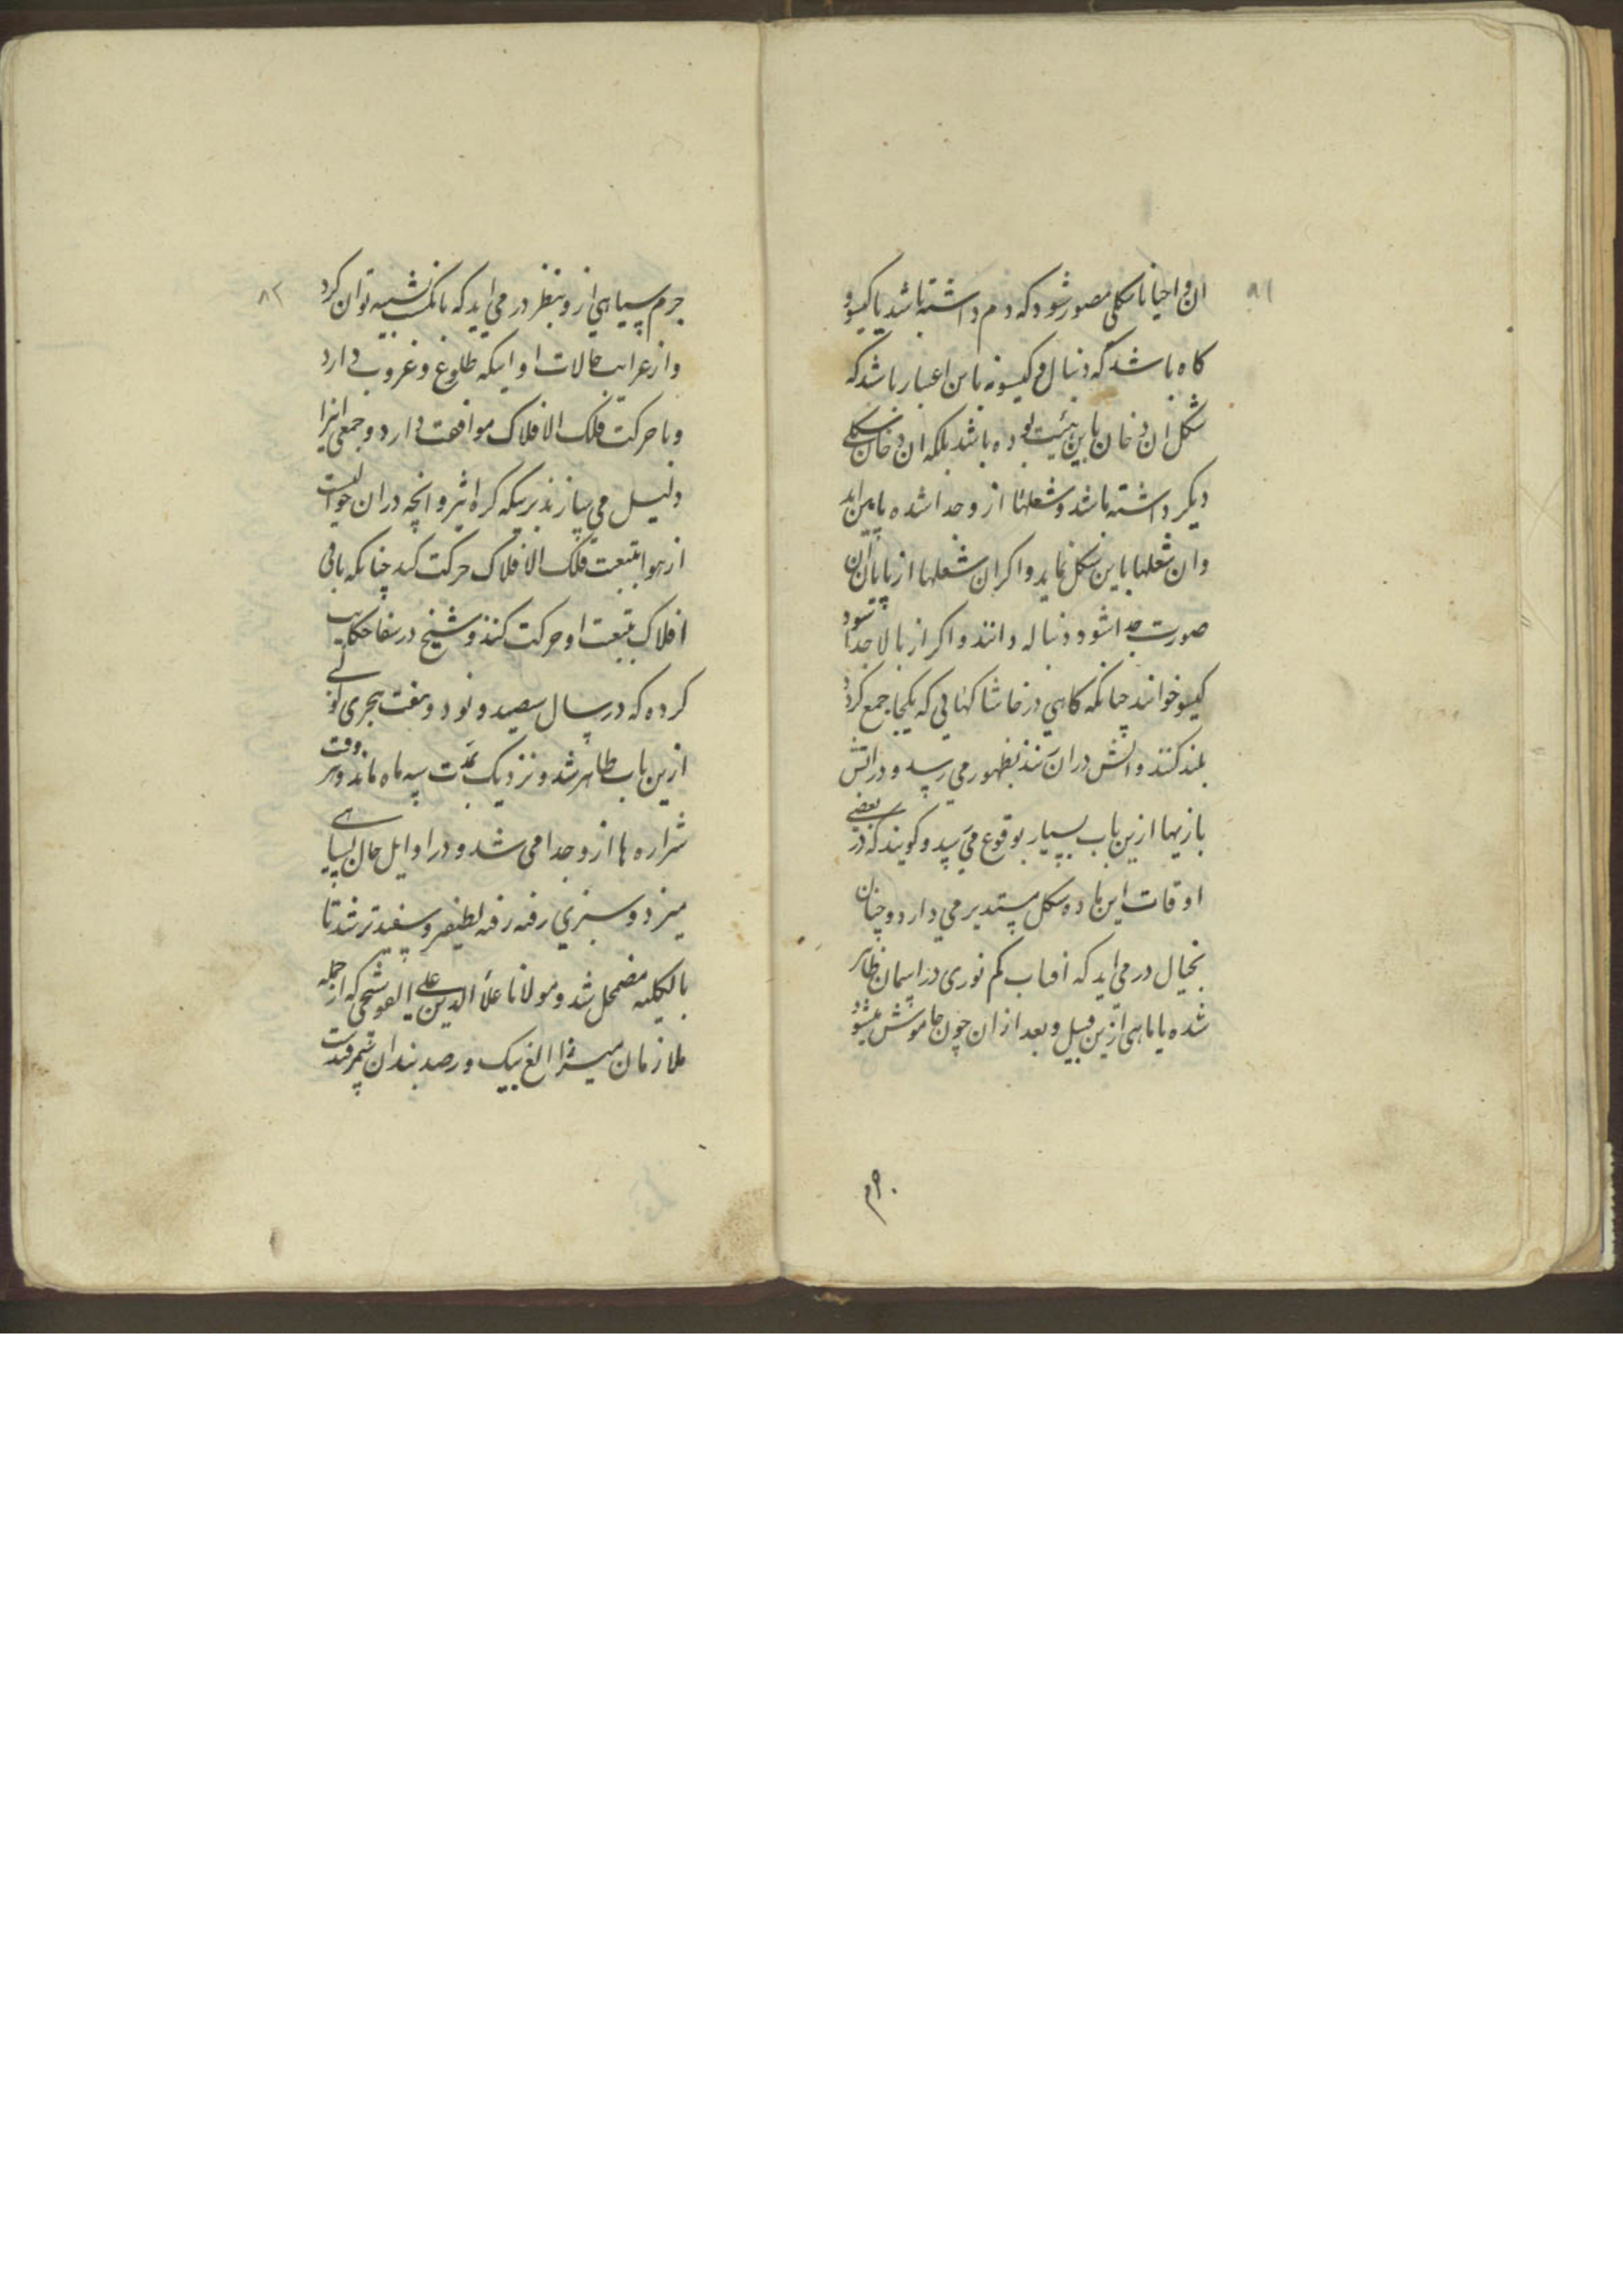 ۸۱
ان و احیانا بشکلی مصور شود که دم داشته باشد یا کیسو و
کاه باشد که دنبال و کیسو نه باین اعتبار باشد که
شکل ان دخان باین هیئت بوده باشد بلکه ان دخان شکلی
دیکر داشته باشد و شعلها از و جدا شده پایین اید
و ان شعلها باین شکل نماید و اکر ان شعلها از پایان ان
صورت جدا شود دنباله دانند و اکر از بالا جدا شود
کیسو خوانند چنانکه کاهی در خاشاکهائی که یکجا جمع کرد
بلند کنند و اتش دران زنند بظهور می رسد و در اتش
بازیها ازین باب بسیار بوقوع می رسد و کویند که در بعضی
اوقات این ماده شکل مستدیر می دارد و چنان
بخیال در می اید که افتاب کم نوری در اسمان ظاهر
شده یا ماهی ازین قبیل و بعد از ان چون خاموش میشود
۸۲
جرم سیاهی از و بنظر در می اید که بانکشت تشبیه توان کرد
و از غرایب حالات او اینکه طلوع و غروب دارد
و با حرکت فلک الافلاک موافقت دارد و جمعی اینرا
دلیل می سازند برینکه کره اثیر و انچه دران حوالیست
از هوا بتبعیت فلک الافلاک حرکت کند چنانکه باقی
افلاک بتبعیت او حرکت کنند و شیخ در شفا حکایت
کرده که در سال سیصد و نود و هفت هجری کوکبی
ازین باب ظاهر شد و نزدیک بمدت سه ماه ماند و هر وقت
شراره ها از و جدا می شد و در اوایل حال بسیاهی
میزد و سبزی رفته رفته لطیفتر و سفیدتر شد تا
بالکلیه مضمحل شد و مولانا علاء الدین علی القوشجی که از جمله
ملازمان میرزا الغ بیک و رصد بندان سمرقندست